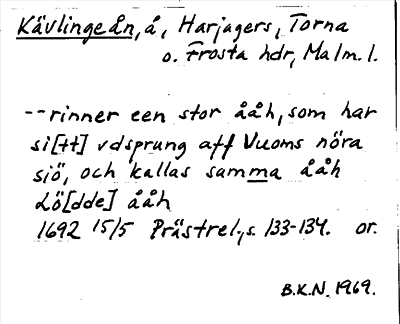 Kävlingeån, å, Harjagers, Torna
o. Frosta hdr, Malm. l.
--rinner een stor ååh, som har
si[tt] vdsprung aff Vuoms nöra
siö, och kallas samma ååh
Lö[dde] ååh
1692 15/5 Prästrel., s. 133-134. or.
B.K.N. 1969.